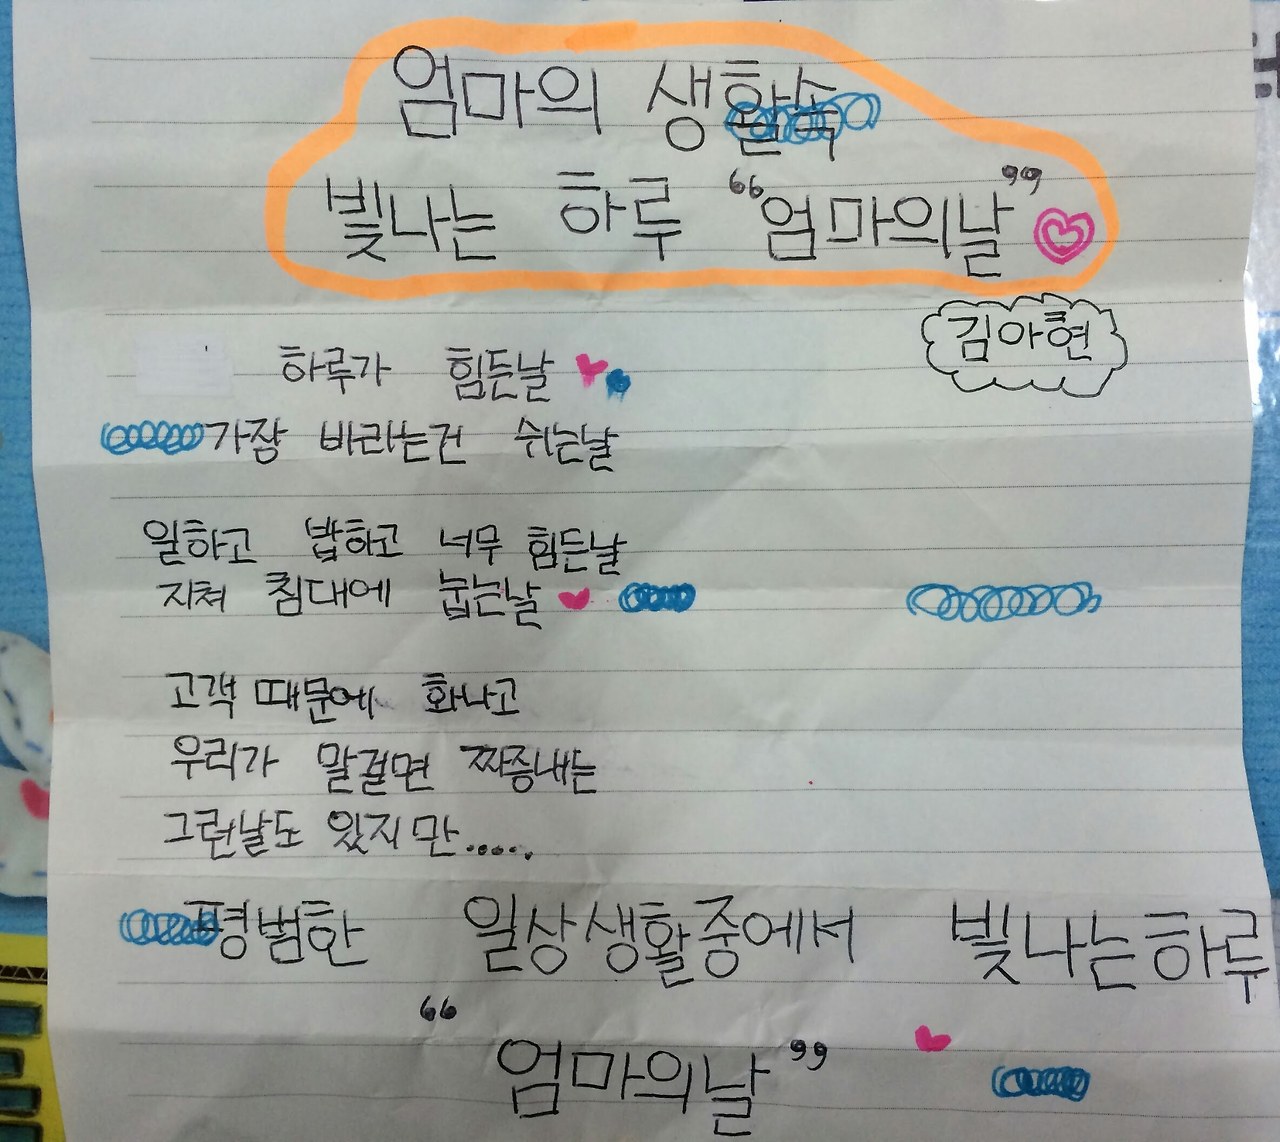 엄마의 생활속
빛나는 하루 “엄마의날”
김아현
하루가 힘든날
가장 바라는건 쉬는날
일하고 밥하고 너무 힘든날
지쳐 침대에 눕는날
고객 때문에 화나고
우리가 말걸면 짜증내는
그런날도 있지만.....
평범한 일상생활중에서 빛나는하루
“엄마의날”